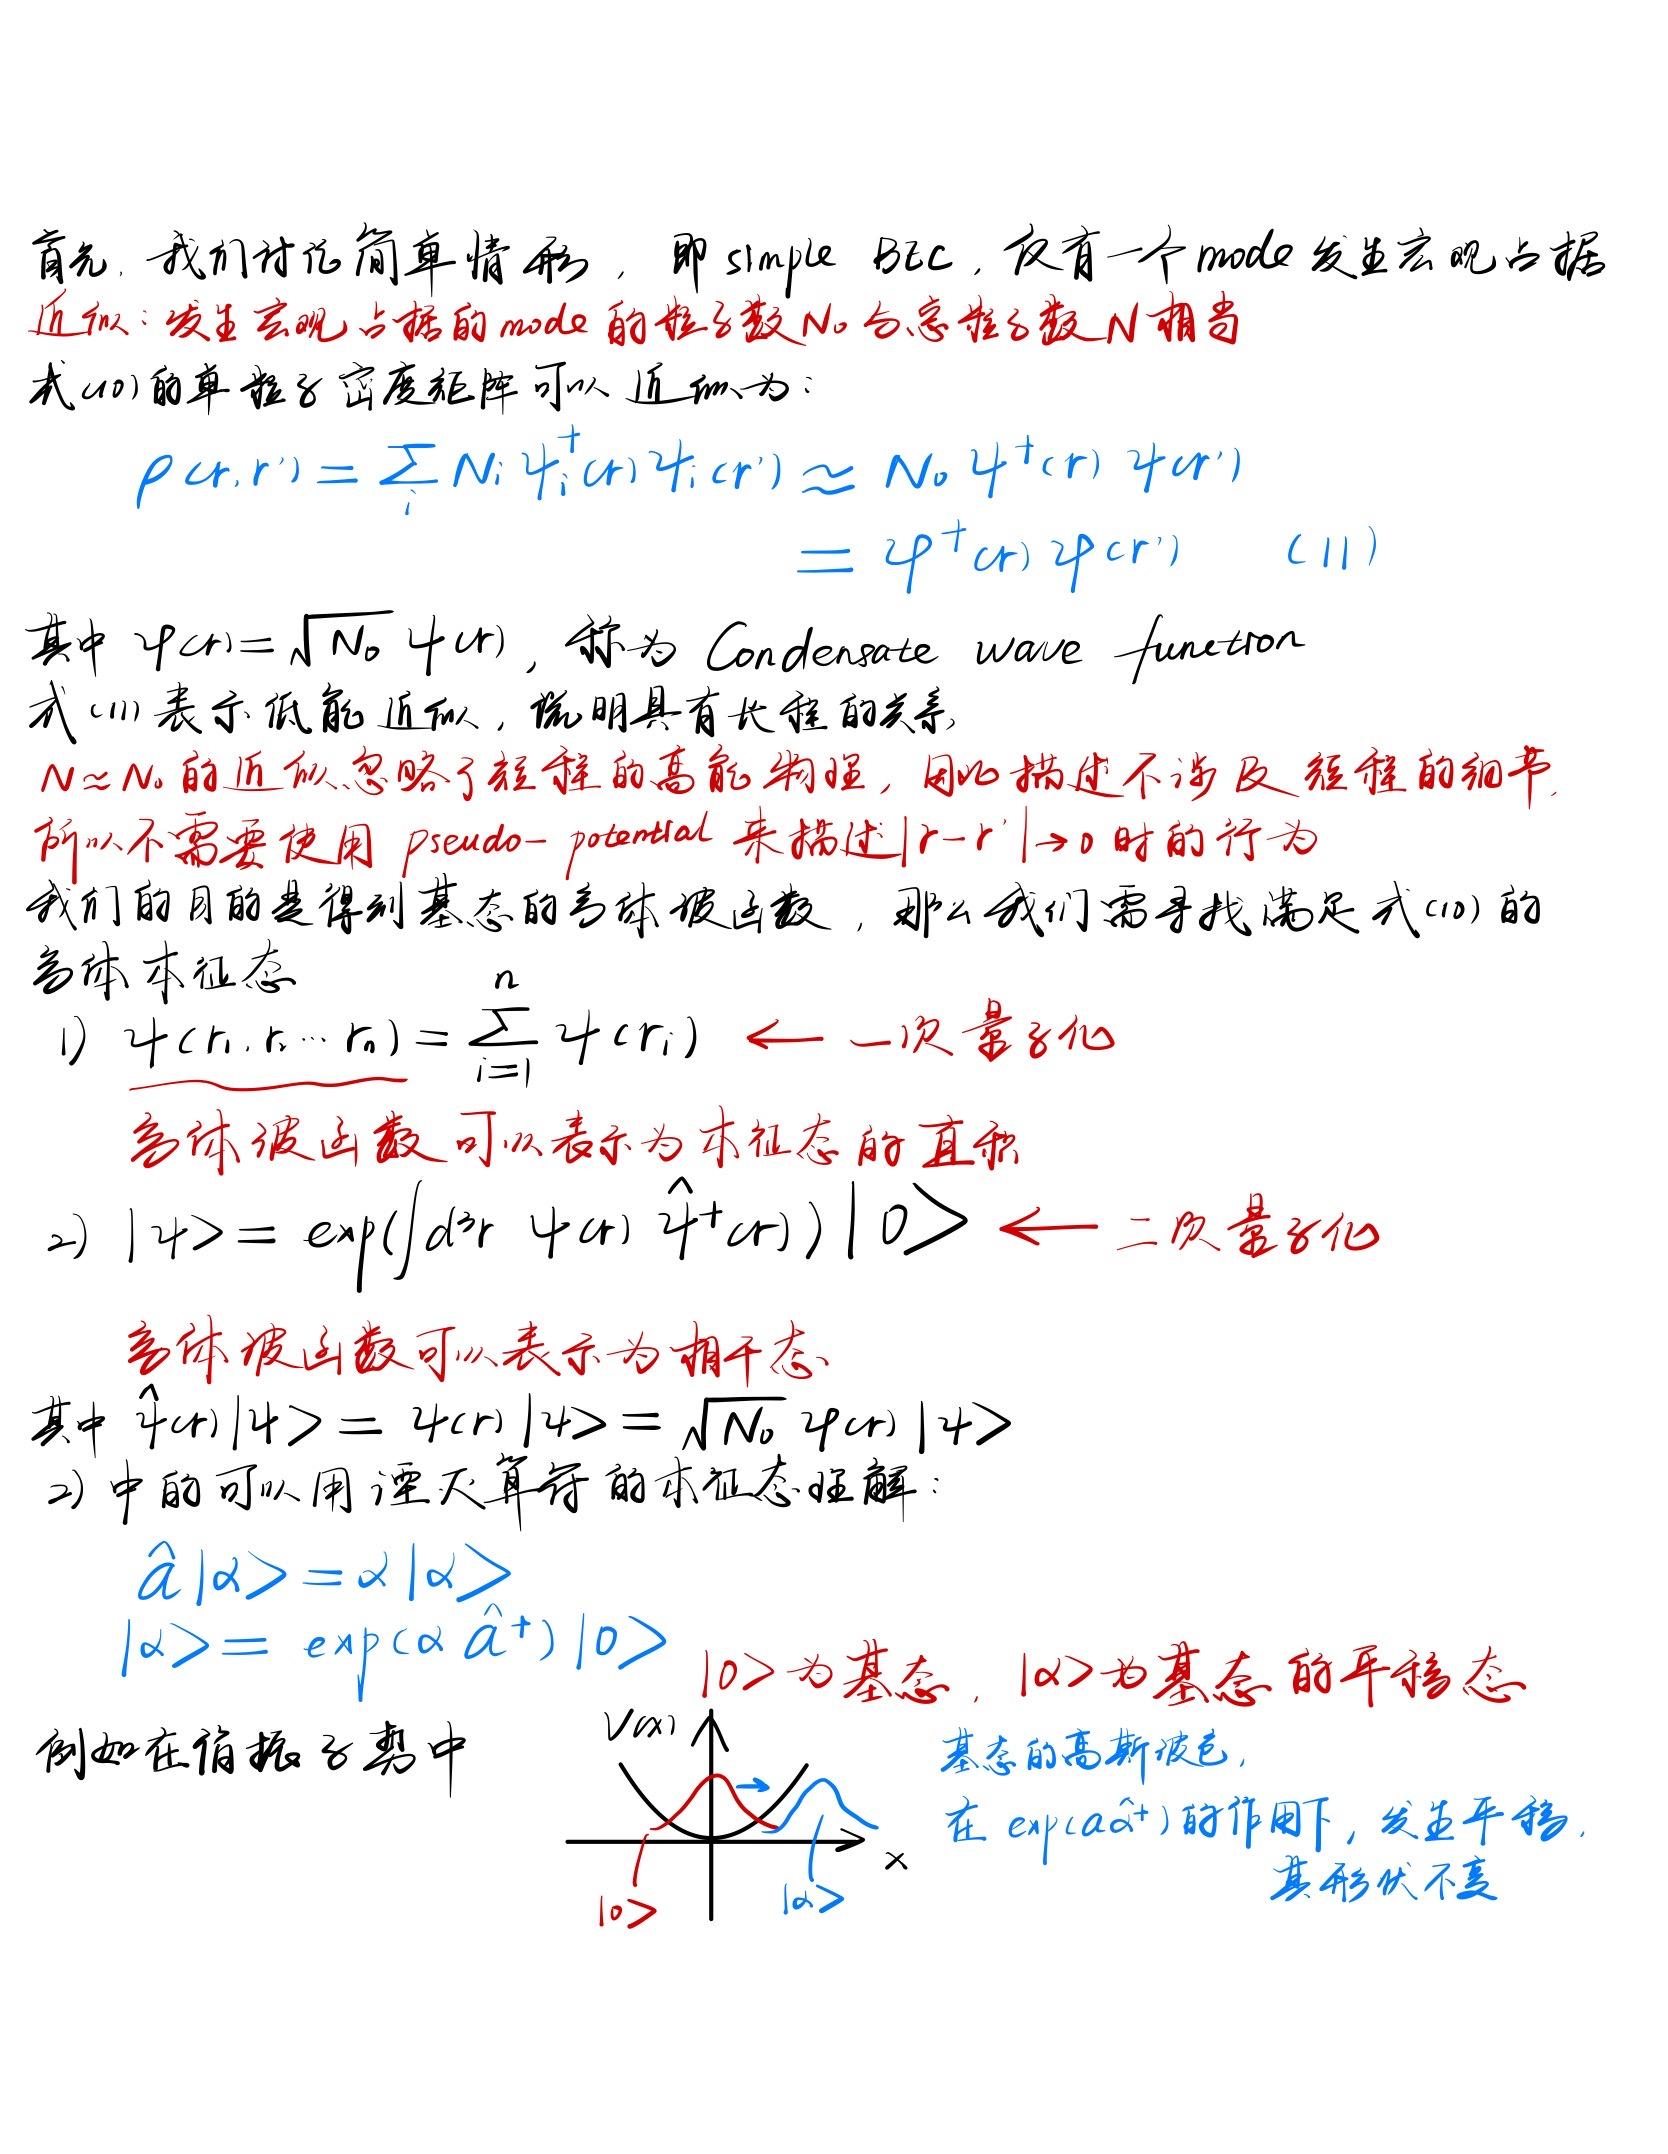 首先,我们讨论简单情形,即 simple BEC,仅有一个mode发生宏观占据
近似:发生宏观占据的mode的粒子数N₀与总粒子数N相当
式(10)的单粒子密度矩阵可以近似为:
ρ(r,r') = Σ_i N_i ψ_i^†(r) ψ_i(r') ≈ N₀ ψ^†(r) ψ(r')
= φ^†(r) φ(r') (11)
其中 φ(r)=√N₀ ψ(r),称为 Condensate wave function
式(11)表示低能近似,说明具有长程的关系
N≈N₀的近似忽略了短程的高能物理,因此描述不涉及短程的细节,
所以不需要使用 pseudo-potential 来描述|r-r'|→0时的行为
我们的目的是得到基态的多体波函数,那么我们需寻找满足式(10)的
多体本征态
1) ψ(r₁,r₂…rₙ) = Σ_{i=1}^{n} ψ(r_i) ← 一次量子化
多体波函数可以表示为本征态的直积
2) |ψ> = exp(∫d³r ψ(r) ψ̂^†(r))|0> ← 二次量子化
多体波函数可以表示为相干态
其中 ψ̂(r)|ψ> = ψ(r)|ψ> = √N₀ φ(r)|ψ>
2)中的可以用湮灭算符的本征态理解:
â|α> = α|α>
|α> = exp(α â^†)|0>
|0>为基态,|α>为基态的平移态
例如在谐振子势中
V(x)
x
|0>
|α>
基态的高斯波包,
在 exp(aα̂^†)的作用下,发生平移,
其形状不变